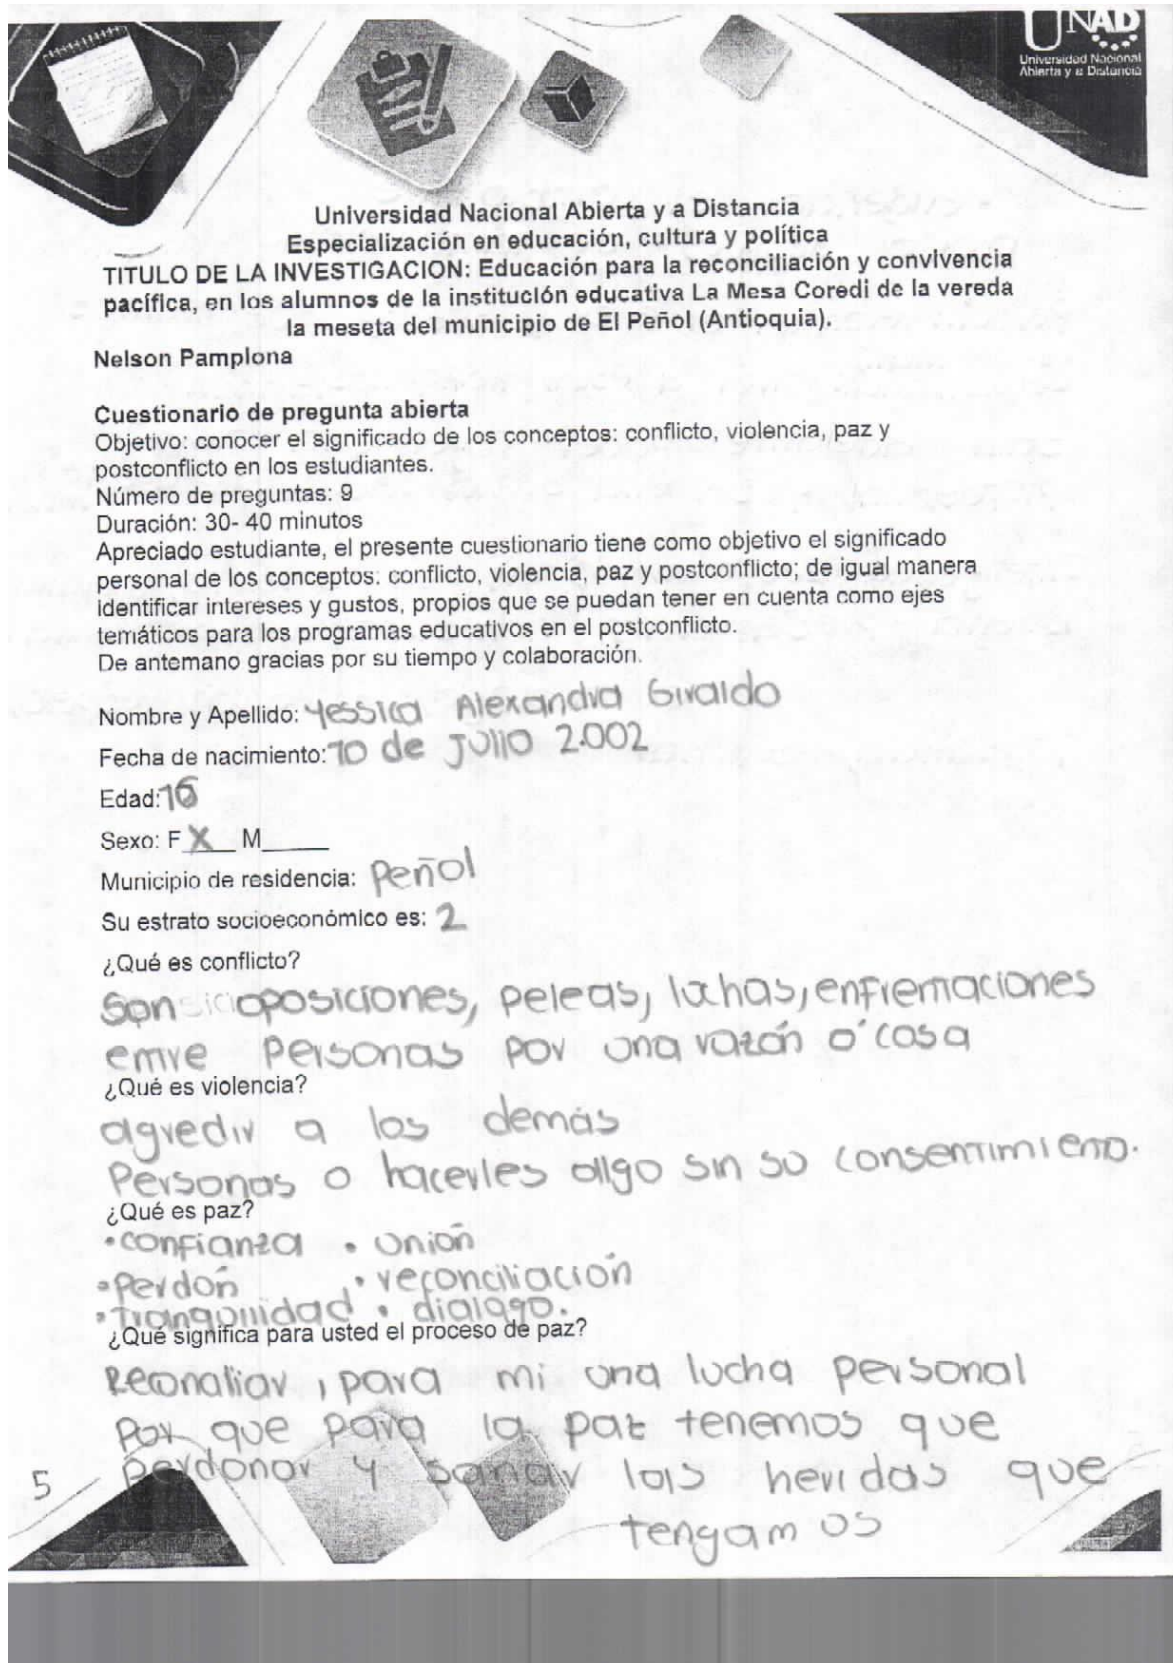 UNAD
Universidad Nacional
Abierta y a Distancia
Universidad Nacional Abierta y a Distancia
Especialización en educación, cultura y política
TITULO DE LA INVESTIGACION: Educación para la reconciliación y convivencia
pacífica, en los alumnos de la institución educativa La Mesa Coredi de la vereda
la meseta del municipio de El Peñol (Antioquia).
Nelson Pamplona
Cuestionario de pregunta abierta
Objetivo: conocer el significado de los conceptos: conflicto, violencia, paz y
postconflicto en los estudiantes.
Número de preguntas: 9
Duración: 30- 40 minutos
Apreciado estudiante, el presente cuestionario tiene como objetivo el significado
personal de los conceptos: conflicto, violencia, paz y postconflicto; de igual manera
identificar intereses y gustos, propios que se puedan tener en cuenta como ejes
temáticos para los programas educativos en el postconflicto.
De antemano gracias por su tiempo y colaboración.
Nombre y Apellido: Yessica Alexandra Giraldo
Fecha de nacimiento: 10 de Julio 2.002
Edad: 16
Sexo: F X M
Municipio de residencia: Peñol
Su estrato socioeconómico es: 2
¿Qué es conflicto?
Son oposiciones, peleas, luchas, enfrentaciones
entre Personas por una razón o cosa
¿Qué es violencia?
agredir a los demás
Personas o hacerles algo sin su consentimiento.
¿Qué es paz?
• confianza • Unión
• Perdón • reconciliación
• Tranquilidad • dialago.
¿Qué significa para usted el proceso de paz?
Reconciliar, para mi una lucha personal
Por que para la paz tenemos que
perdonar y sanar las heridas que
tengamos
5